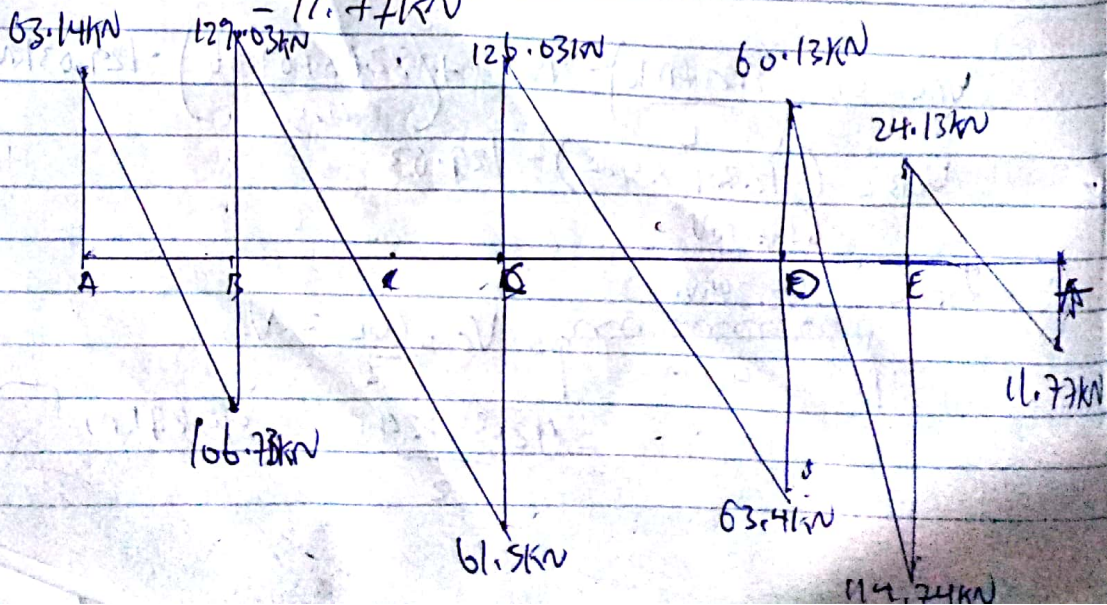 = 11.77KN
63.14KN 129.03KN 126.03KN 60.13KN
24.13KN
A B C D E F
106.73KN 11.77KN
61.5KN 63.41KN
114.74KN